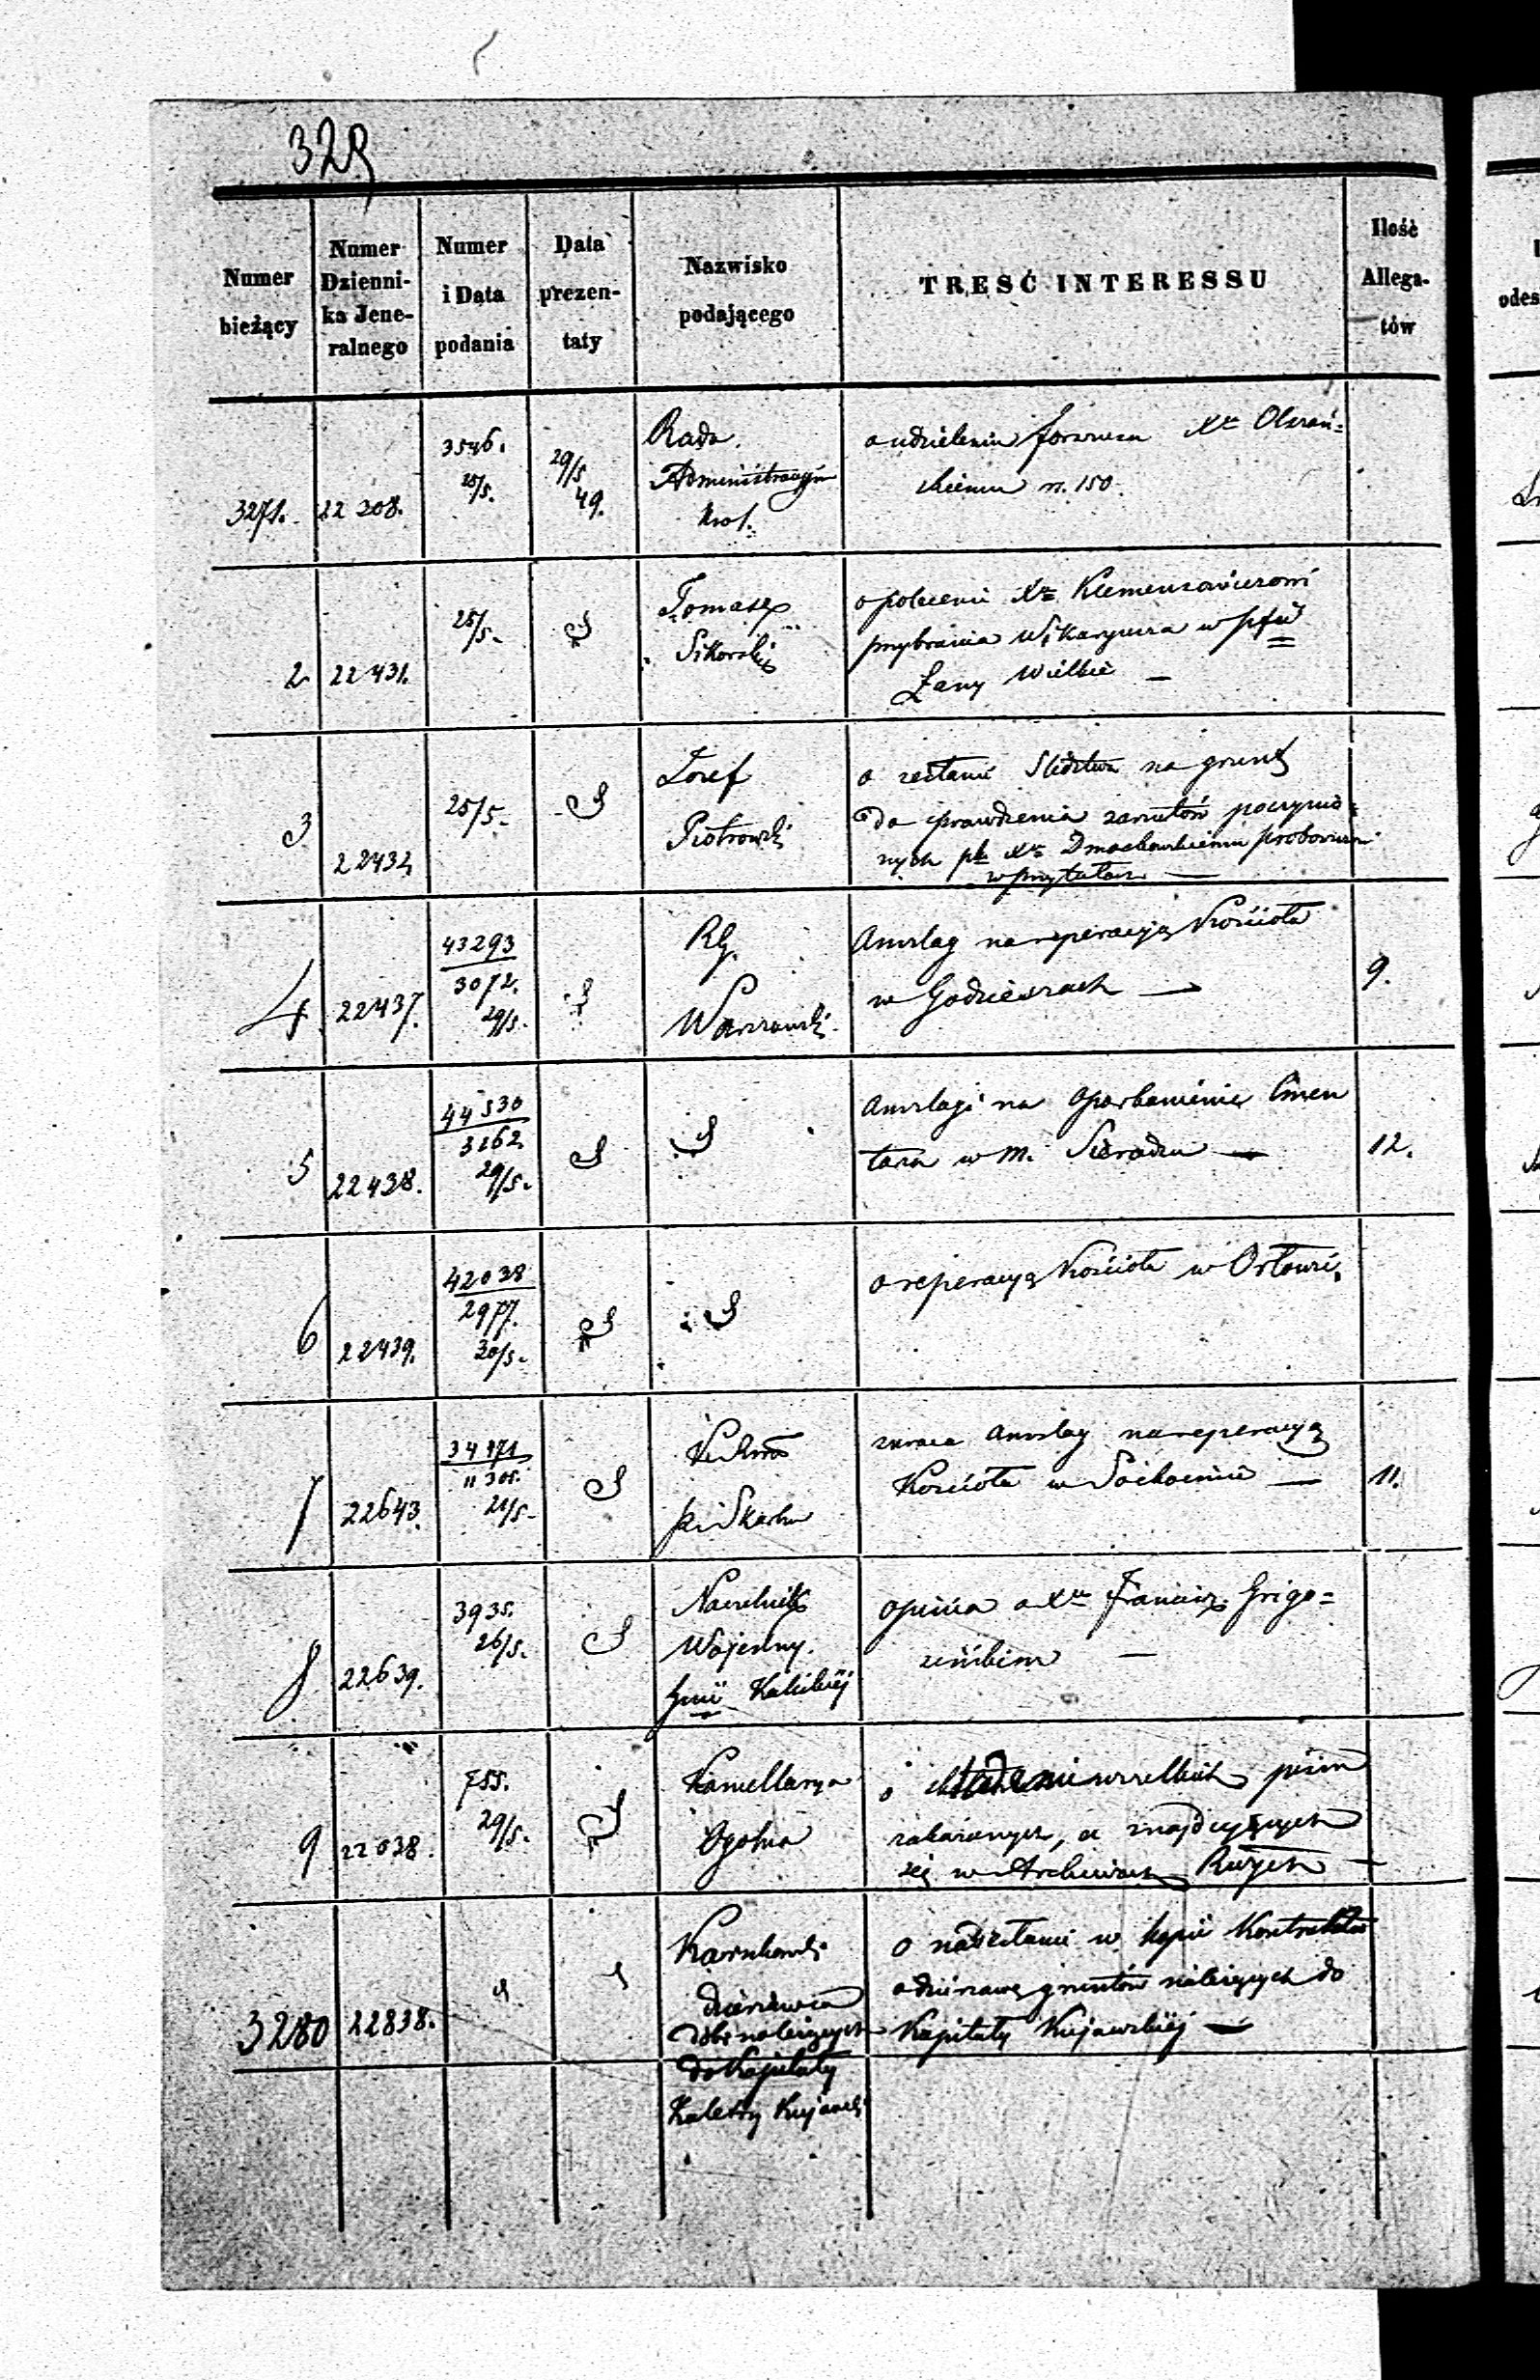 328
Numer bieżący
Numer Dzienni-ka Jene-ralnego
Numer i Data podania
Data prezen-taty
Nazwisko podającego
TREŚĆ INTERESSU
Ilość Allega-tów
3271. 22 208. 3546. 25/5. 29/5 49. Rada
Administracyjn
Krol.
o udzielenie X
skiemu n. 150.
2 22431. 25/5. Tomasz
Sikorski
o polecenie Xu Klemensowiczowi
przybrania Wikaryusza w pfii
Łany Wielkie —
3 22432 25/5. Józef
Piotrowski
o zesłanie Śledztwa na grunt
do sprawdzenia zarzutów poczynio=
nych pk Xu Dmochowskiemu proboszczowi
w
4 22437. 43293
3072.
29/5. RG.
Warszawski
Anszlag na reperacyą Kościoła
w Godzieszach —
9.
5 22438. 44530
3162
29/5.
Anszlagi na oparkanienie Cmen
tarza w m. Sieradzu —
12.
6 22439. 42038
2977.
30/5.
o reperacyą Kościoła w Orłowie.
7 22643. 34171
11305.
21/5. KRS
pi Skarbu
zwraca Anszlag na reperacyą
Kościoła w Sochocinie —
11.
8 22639. 3935.
26/5. Naczelnik
Wojenny
Gnii Kaliskiej
opinia o Xu Francisz. Grigo=
—
9 22038. 755.
29/5. Kancellarya
Ogólna
o wszelkich pism
zakazanych, a znajdujących
się w Archiwach —
3280 22838. Karnkowski
dzierżawca
dóbr należących
do Kapituły
Katedry Kujawski
o nadesłanie w kopii Kontraktów
o dzierżawę gruntów należących do
Kapituły Kujawskiej —